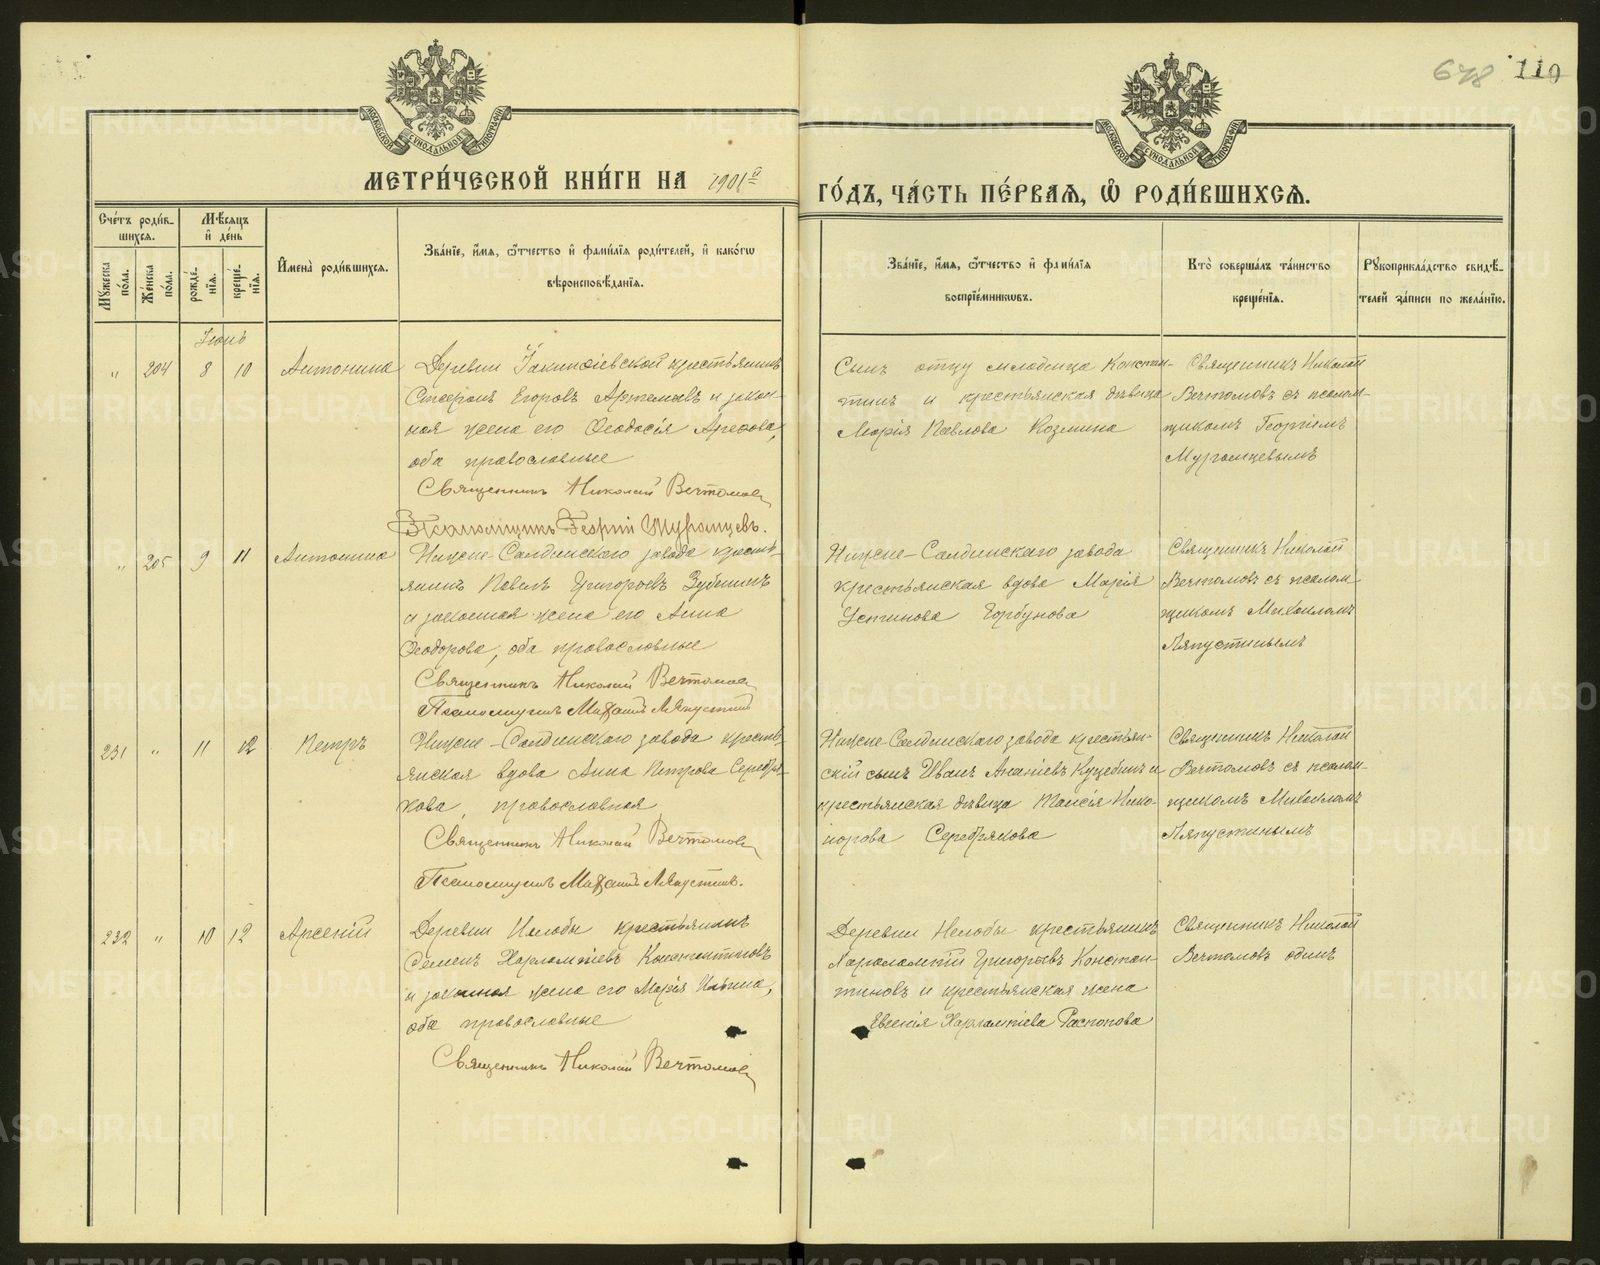 678 119
МОСКОВСКОЙ СѴНОДАЛЬНОЙ ТИПОГРАФІИ
МОСКОВСКОЙ СѴНОДАЛЬНОЙ ТИПОГРАФІИ
МЕТРИ́ЧЕСКОЙ КНИ́ГИ НА 1901й
ГО́ДЪ, ЧА́СТЬ ПЕ́РВАѦ, Ѿ РОДИ́ВШИХСѦ.
Сче́тъ роди́в-
шихсѧ.
Мꙋжеска по́ла.
Же́нска по́ла.
Мѣ́сѧцъ
и҆ де́нь
рожде́-
нїѧ.
креще́-
нїѧ.
И҆мена̀ роди́вшихсѧ.
Зва́нїе, и҆́мѧ, ѻ҆́тчество и҆ фами́лїѧ роди́телей, и҆ како́гѡ
вѣроисповѣ́данїѧ.
Зва́нїе, и҆́мѧ, ѻ҆́тчество и҆ фами́лїѧ
воспрїе́мникѡвъ.
Кто̀ соверша́лъ та́инство
креще́нїѧ.
Рꙋкоприкла́дство свидѣ́-
телей за́писи по жела́нїю.
Іюнь
„ 204 8 10 Антонина
Деревни Іакинѳіевской крестьянинъ
Стефанъ Егоровъ Артемьевъ и закон-
ная жена его Ѳеодосія Арефова,
оба православные
Священникъ Николай Вечтомовъ
Псаломщикъ Георгій Мурзинцевъ.
Сынъ отцу младенца Констан-
тинъ и крестьянская дѣвица
Марія Павлова Козмина
Священникъ Николай
Вечтомовъ съ псалом-
щикомъ Георгіемъ
„ 205 9 11 Антонина
Нижне-Салдинскаго завода кресть-
янинъ Павелъ Григорьевъ Зубкинъ
и законная жена его Анна
Ѳеодорова, оба православные
Священникъ Николай Вечтомовъ
Псаломщикъ Михаилъ Ляпустинъ
Нижне-Салдинскаго завода
крестьянская вдова Марія
Устинова Горбунова
Священникъ Николай
Вечтомовъ съ псалом-
щикомъ Михаиломъ
Ляпустинымъ
231 „ 11 12 Петръ
Нижне-Салдинскаго завода кресть-
янская вдова Анна Петрова Серебря-
кова, православная
Священникъ Николай Вечтомовъ
Псаломщикъ Михаилъ Ляпустинъ.
Нижне-Салдинскаго завода крестьян-
скій сынъ Иванъ Ананіевъ и
крестьянская дѣвица Таисія Ника-
норова Серебрякова
Священникъ Николай
Вечтомовъ съ псалом-
щикомъ Михаиломъ
Ляпустинымъ
232 „ 10 12 Арсеній
Деревни Нелобы крестьянинъ
Семенъ Харлампіевъ Константиновъ
и законная жена его Марія Ильина,
оба православные
Священникъ Николай Вечтомовъ
Деревни Нелобы крестьянинъ
Харалампій Григорьевъ Констан-
тиновъ и крестьянская жена
Евгенія Харлампіева Распопова
Священникъ Николай
Вечтомовъ одинъ
METRIKI.GASO-URAL.RU